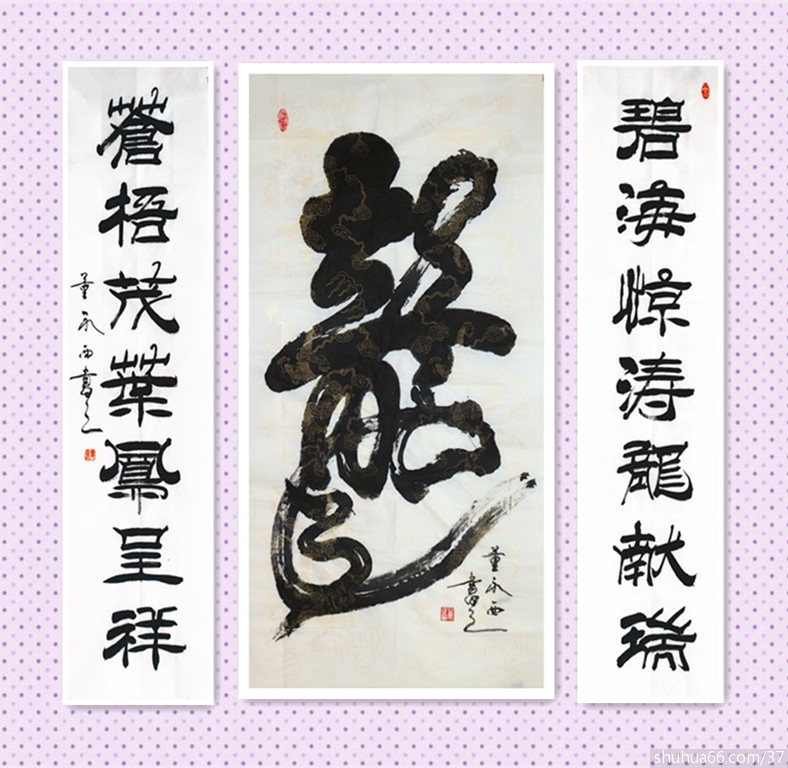 碧海惊涛龍献瑞
龍
董永西書
蒼梧茂葉鳳呈祥
董永西書
shuhua66.com/37